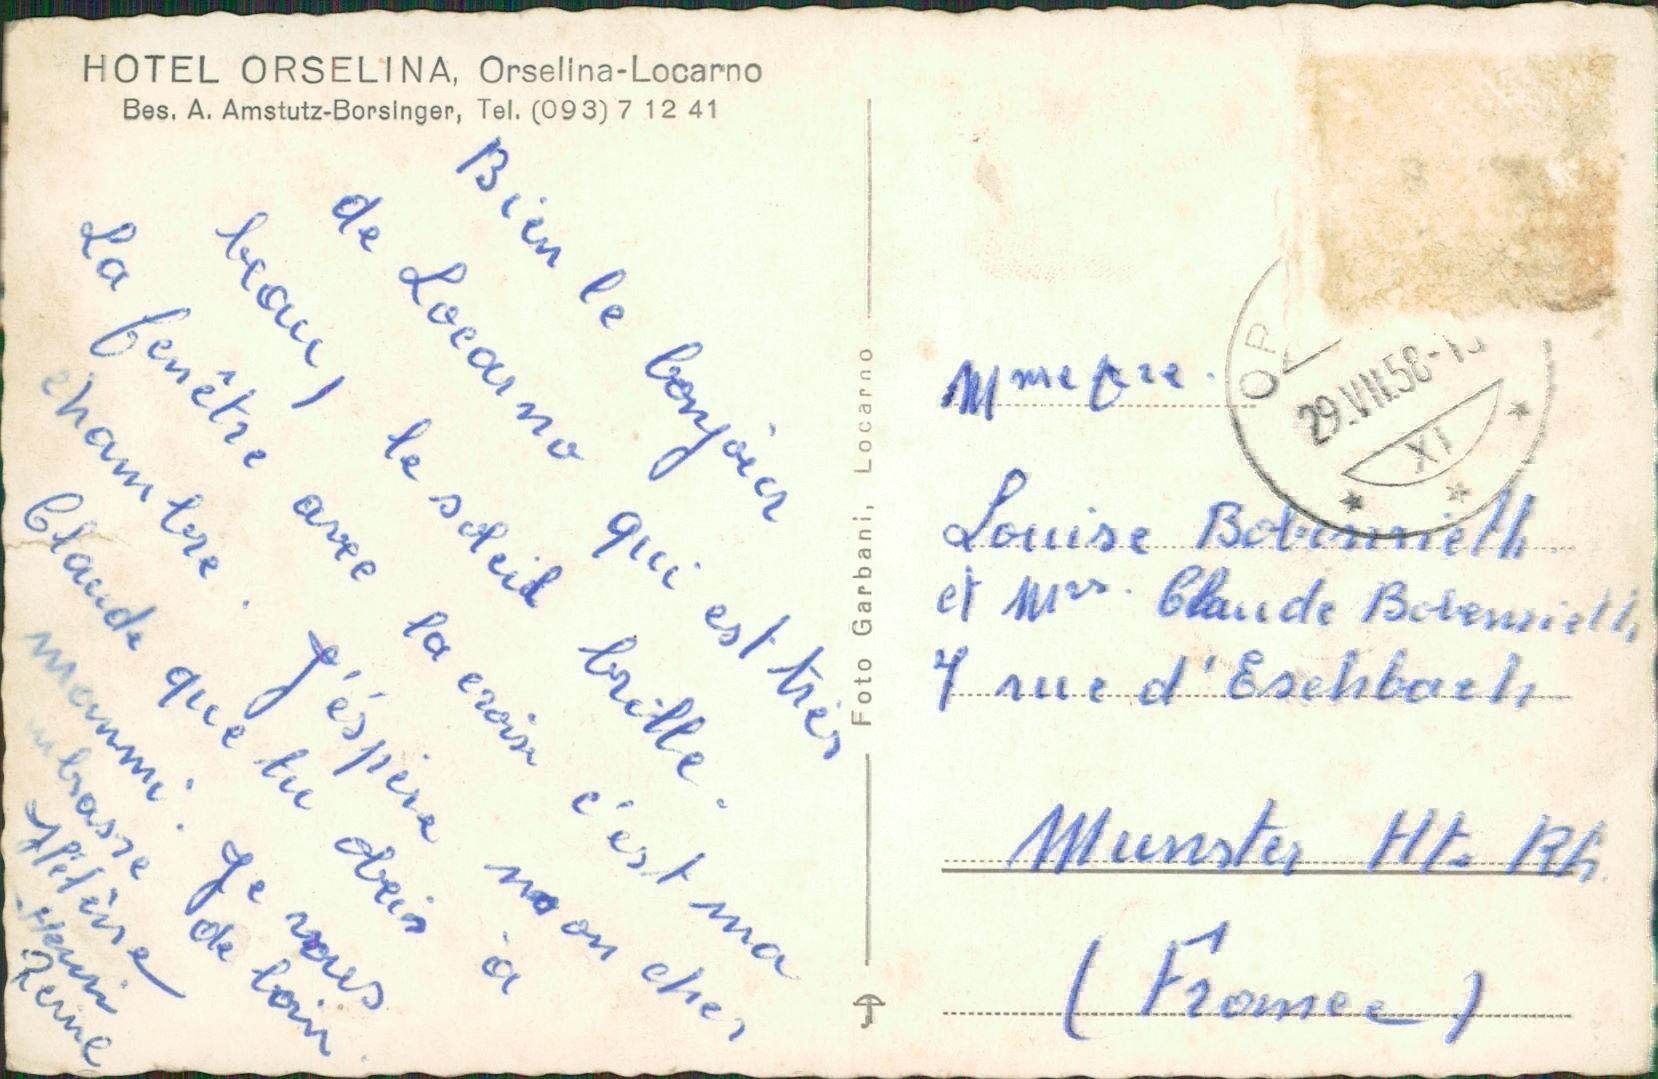 HOTEL ORSELINA, Orselina-Locarno
Bes. A. Amstutz-Borsinger, Tel. (093) 7 12 41
Bien le bonjour
de Locarno qui est très
beau, le soleil brille.
La fenêtre avec la croix c'est ma
chambre. J'éspère mon cher
Claude que tu obeis à
mammi. Je vous
embrasse de loin.
Hélène
Henri
Reine
Foto Garbani, Locarno
29.VIII.58-1
XI
Mme
Louise Bobenrieth
et Mrs. Claude Bobenrieth
7 rue d'Eschbach
Munster Ht. Rh.
(France)